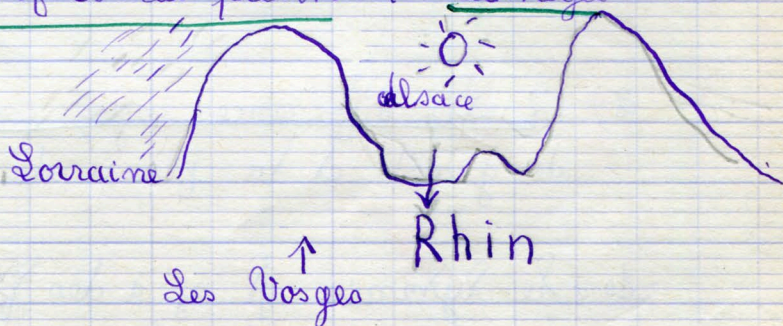 Alsace
Lorraine
Rhin
Les Vosges